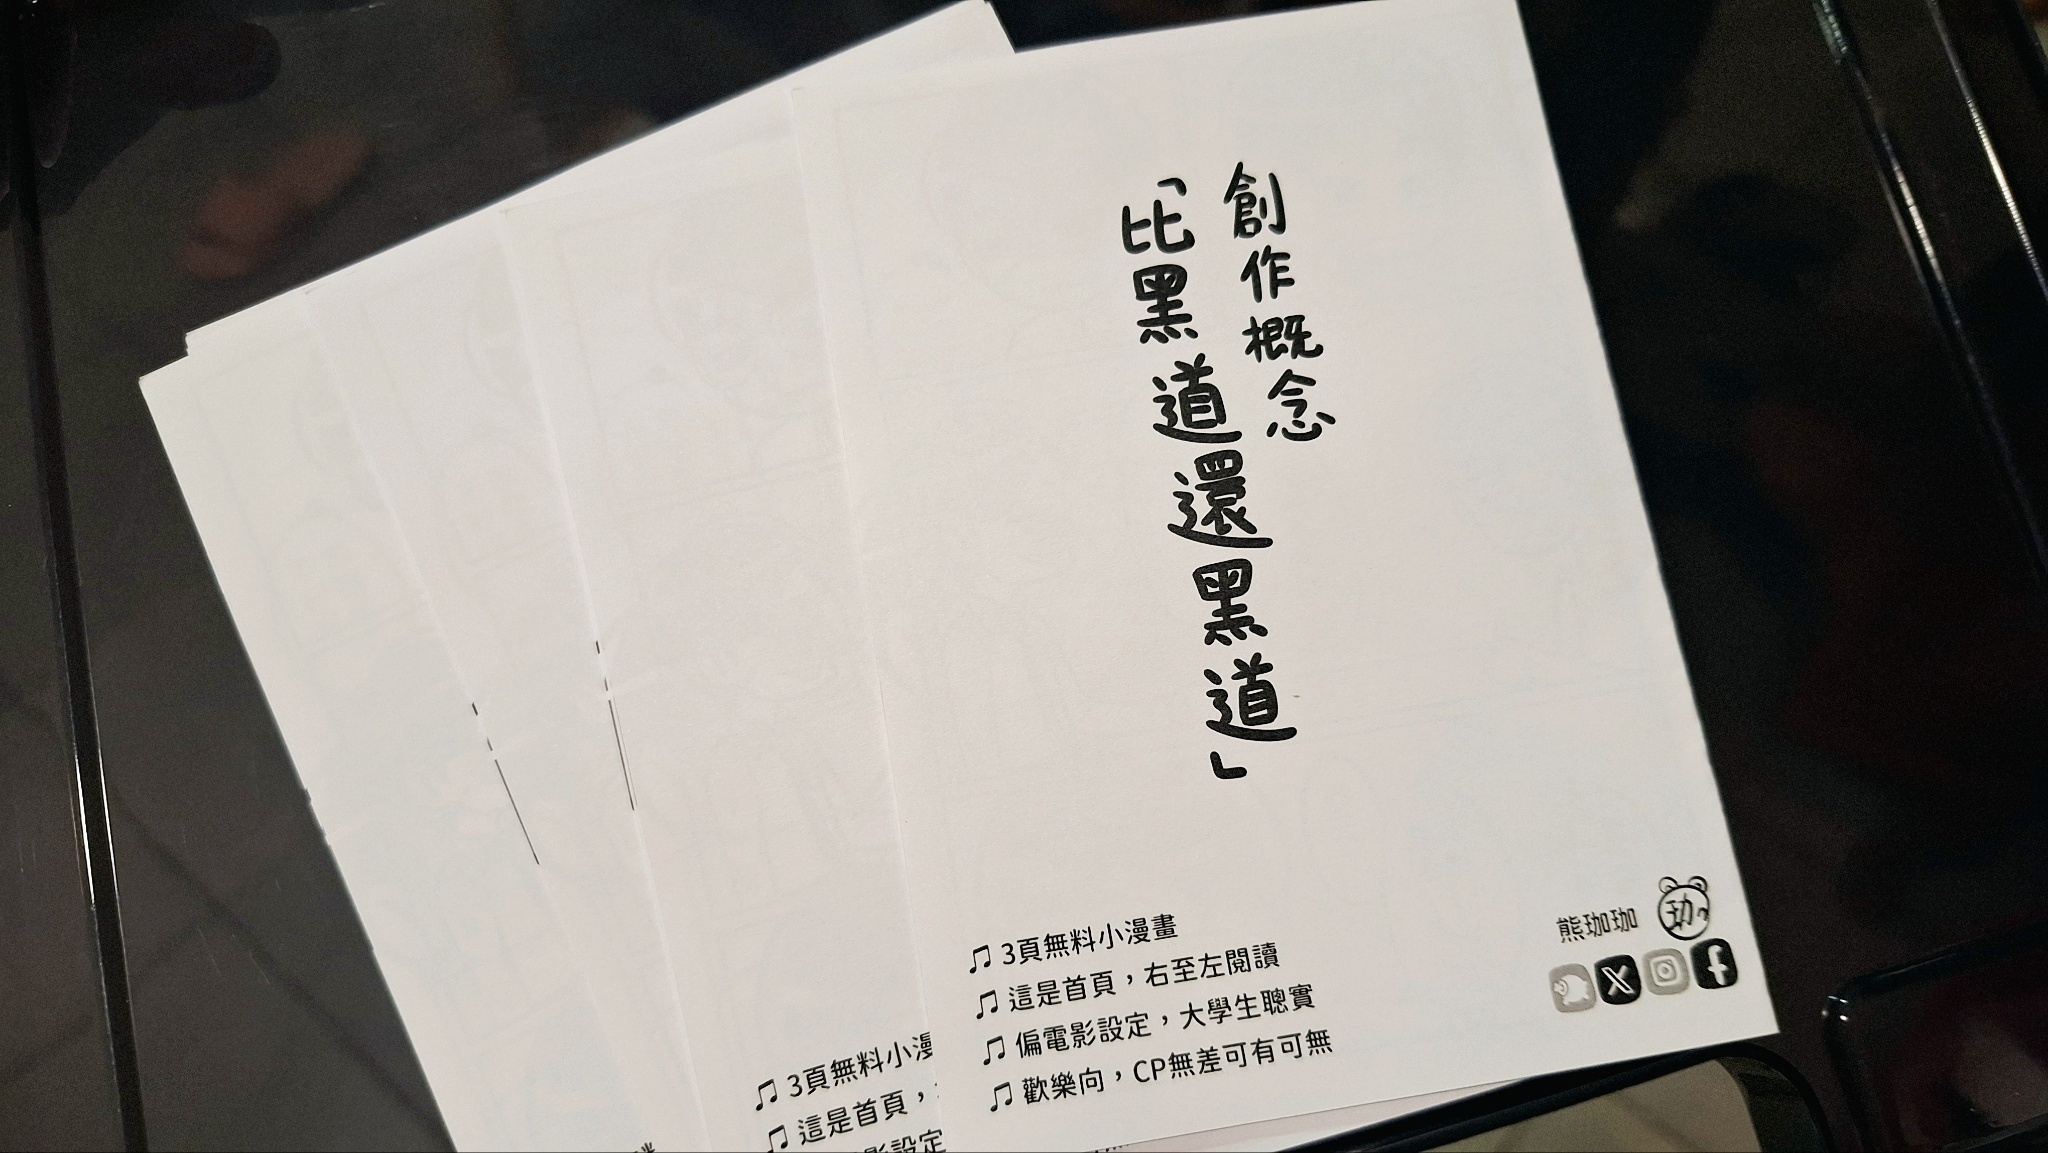 創作概念
「比黑道還黑道」
♫ 3頁無料小漫畫
♫ 這是首頁，右至左閱讀
♫ 偏電影設定，大學生聰實
♫ 歡樂向，CP無差可有可無
熊珈珈
珈
♫ 3頁無料小漫
♫ 這是首頁，
影設定